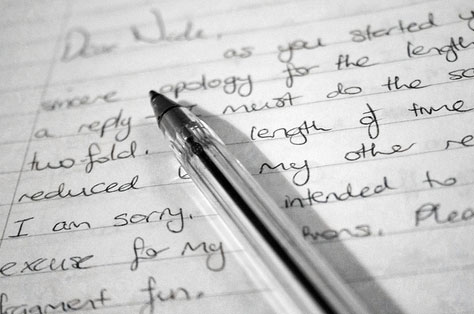 Dear Nade,
as you started
sincere apology for the length
a reply must do the
two-fold. length of time
reduced my other
I am sorry. intended to
excuse for my
fragment fun.